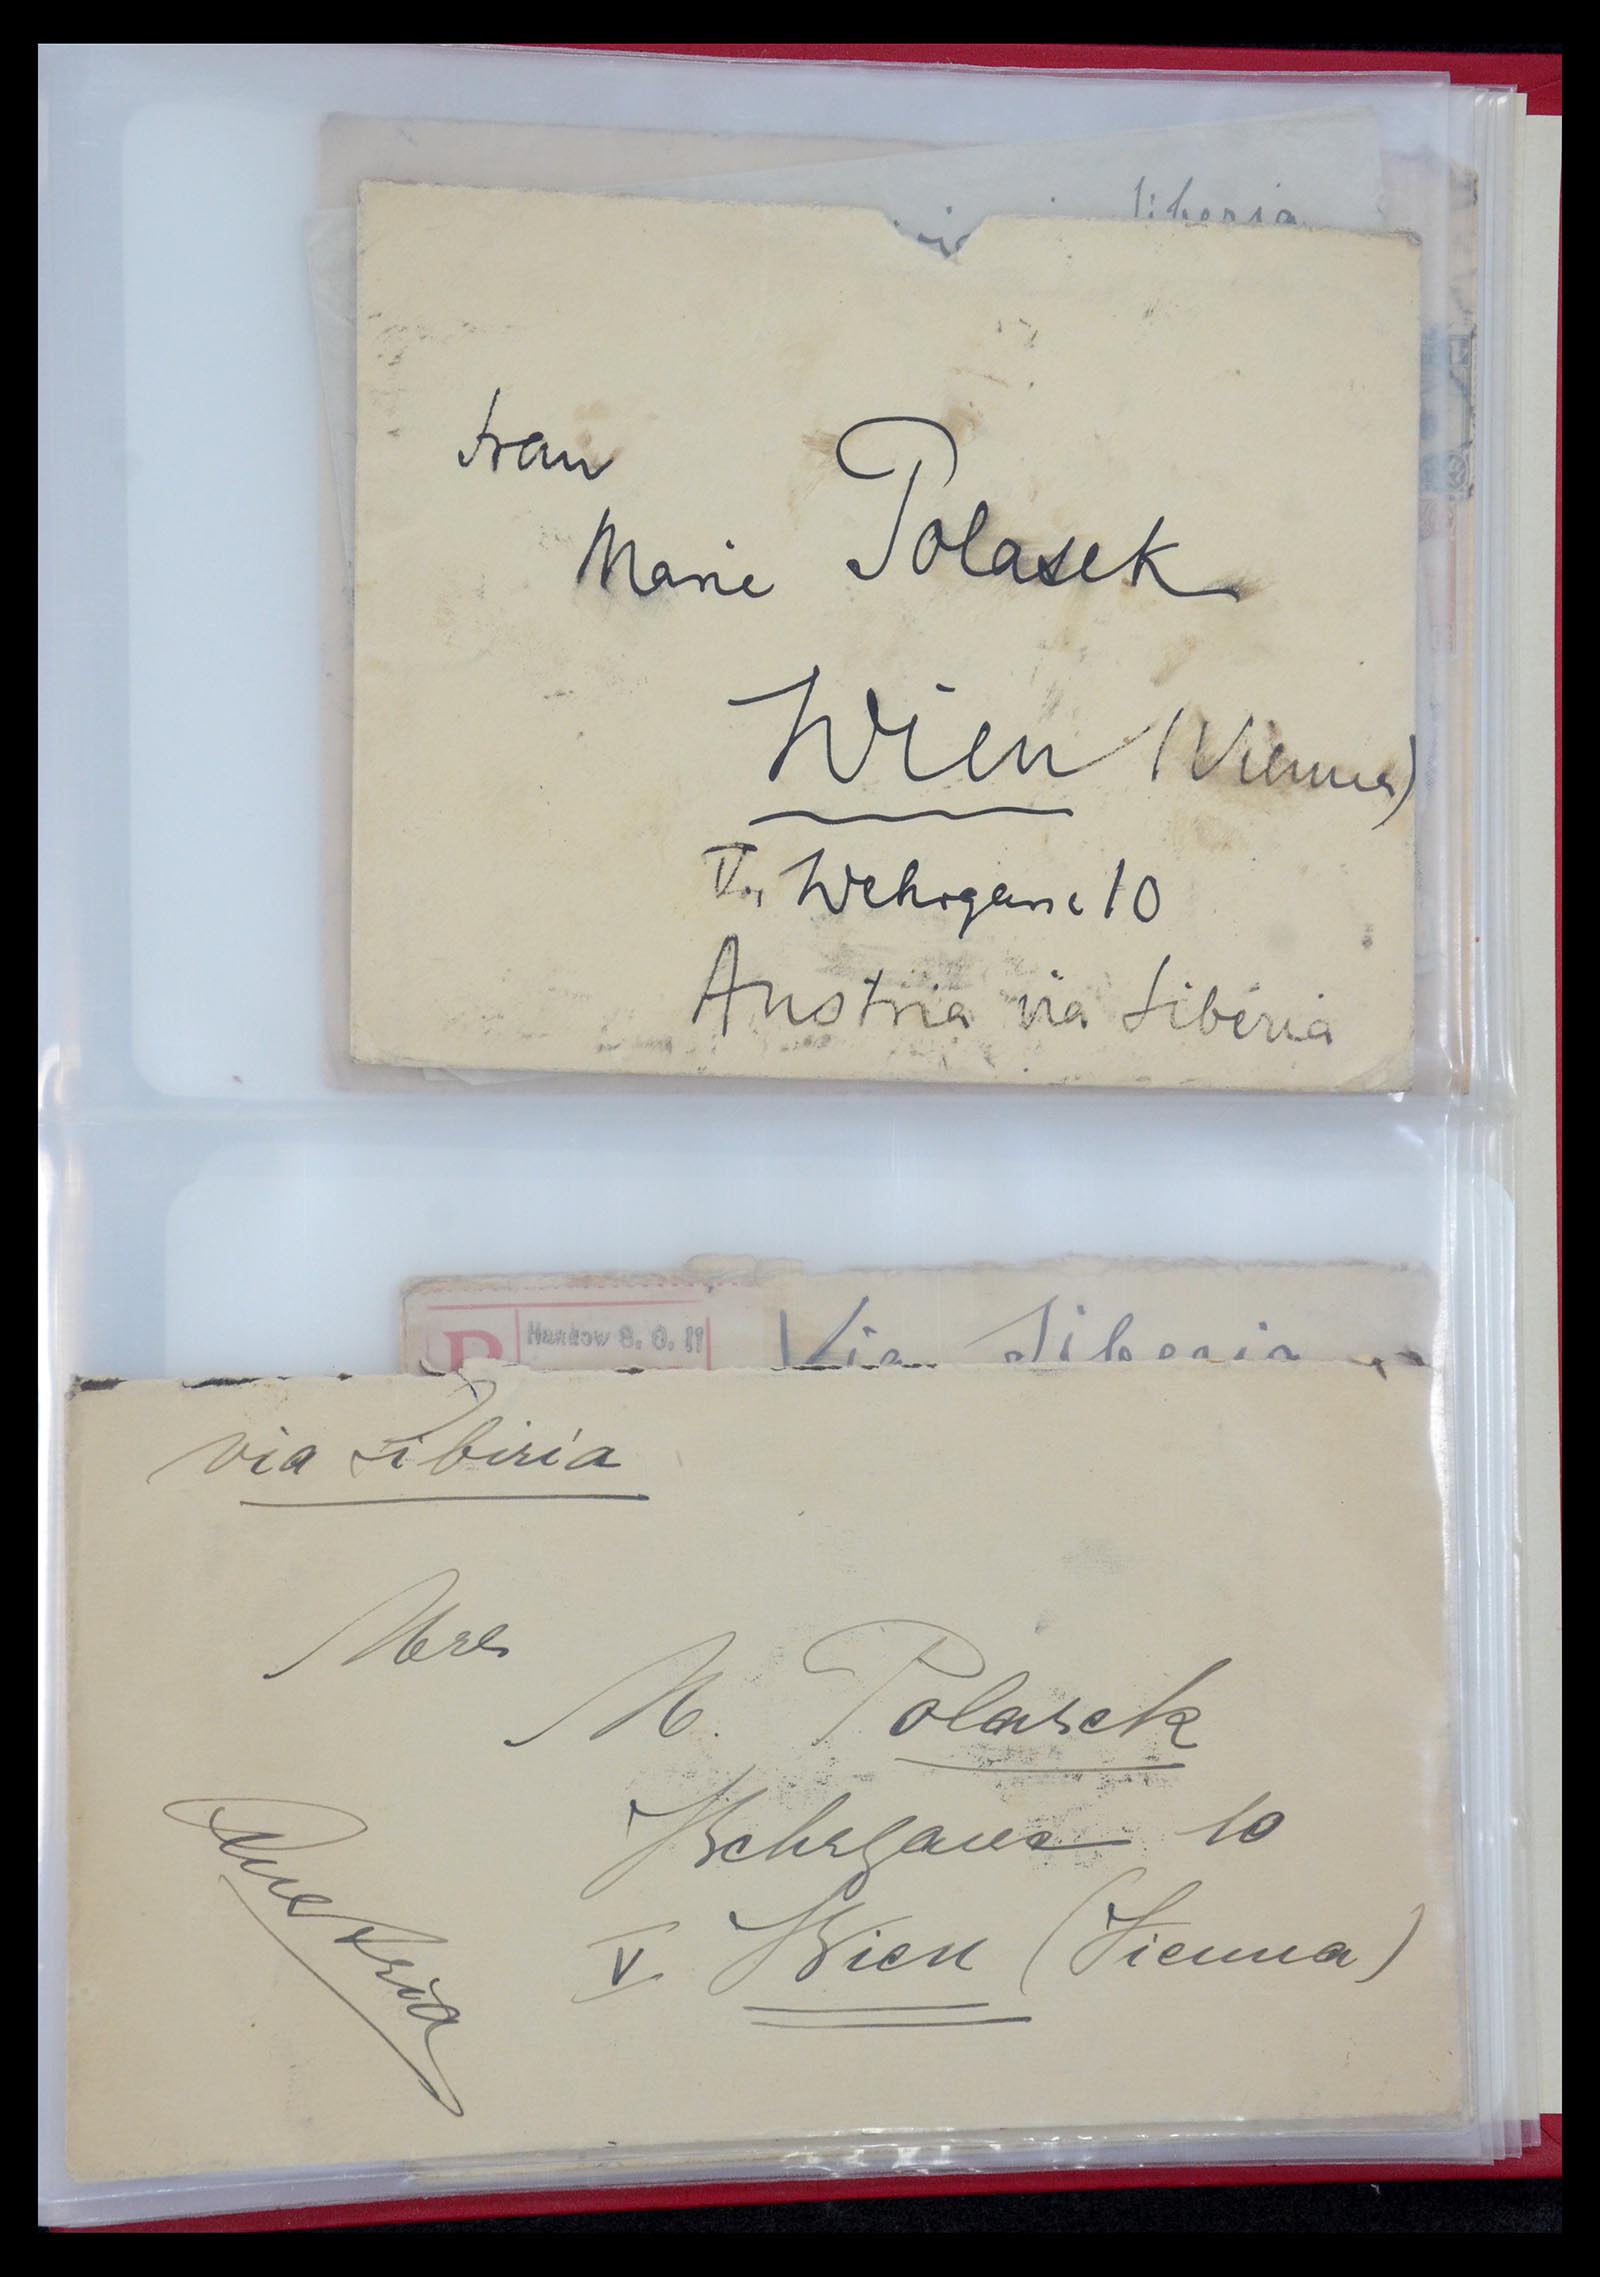 Siberia
Frau
Marie Polasek
Wien (Vienna)
V., Wehrgasse 10
Austria via Sibéria
R
Hankow
Via Siberia
via Sibiria
Mrs
M. Polasek
Wehrgasse 10
V Wien (Vienna)
Austria